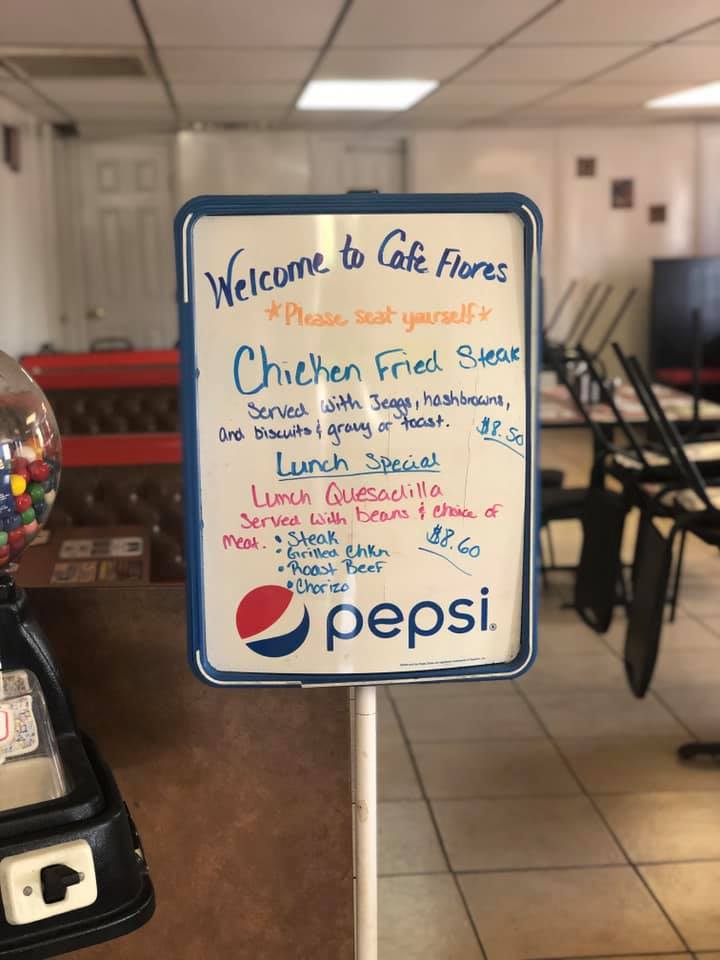 Welcome to Cafe Flores
*Please seat yourself*
Chicken Fried Steak
Served with 2eggs, hashbrowns,
and biscuits & gravy or toast. $8.50
Lunch Special
Lunch Quesadilla
Served with beans & choice of
meat. • Steak $8.60
• Grilled Chkn
• Roast Beef
• Chorizo
pepsi®